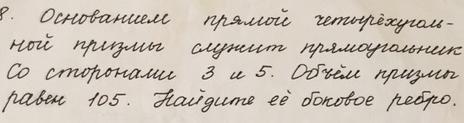 8. Основанием прямой четырёхуголь-
ной призмы служит прямоугольник
со сторонами 3 и 5. Объём призмы
равен 105. Найдите её боковое ребро.